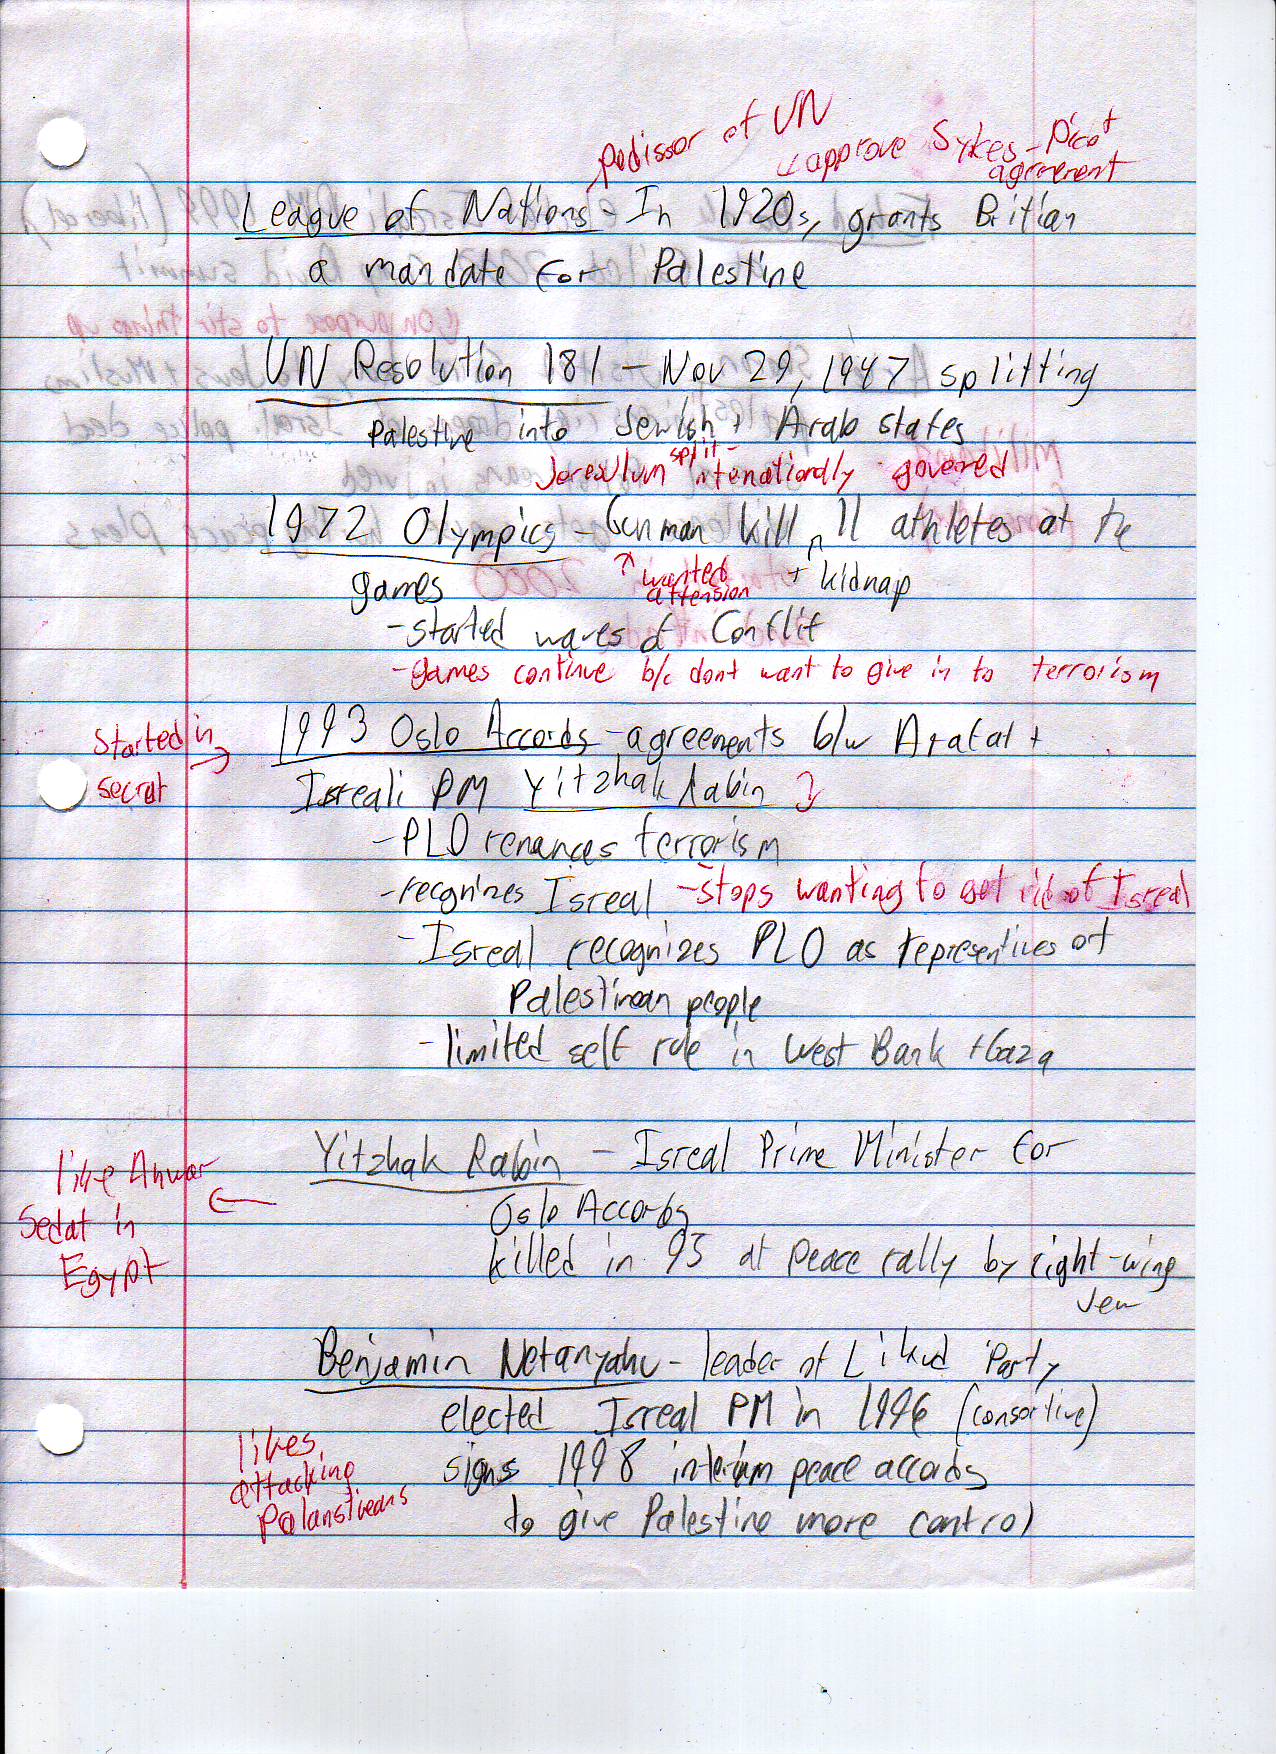 pedissor of UN
approve Sykes-Picot
agreement
League of Nations - In 1920s, grants Britian
a mandate for Palestine
UN Resolution 181 - Nov 29, 1947 splitting
Palestine into Jewish + Arab states
split -
Joresulum intenationdly govered
1972 Olympics - Gunman kill 11 athletes at the
games
wanted
attension
+ kidnap
- started waves of Conflit
- games continue b/c dont want to give in to terrorism
Started in
secrat
1993 Oslo Accords - agreements b/w Arafat +
Isreali PM Yitzhak Rabin
- PLO renances terrorism
- recgnizes Isreal - stops wanting to get rid of Isreal
- Isreal recognizes PLO as representives of
Palestinean people
- limited self rule in West Bank + Gaza
Yitzhak Rabin - Isreal Prime Minister for
Oslo Accords
killed in 95 at peace rally by right-wing
Jew
like Anwar
Sedat in
Egypt
Benjamin Netanyahu - leader of Likud Party
elected Isreal PM in 1996 (consortive)
signs 1998 interim peace accords
to give Palestine more control
likes
attacking
Palanstineans